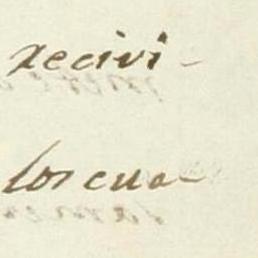 recivi-
los cua-